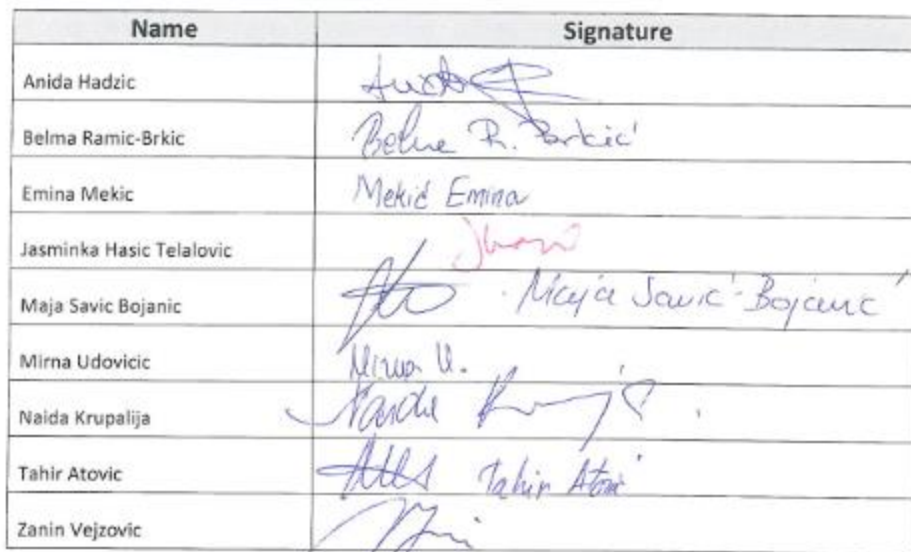 Name Signature
Anida Hadzic
Belma Ramic-Brkic Belma R. Brkić
Emina Mekic Mekić Emina
Jasminka Hasic Telalovic
Maja Savic Bojanic Maja Savić-Bojanić
Mirna Udovicic Mirna U.
Naida Krupalija Naida
Tahir Atovic Tahir Atović
Zanin Vejzovic